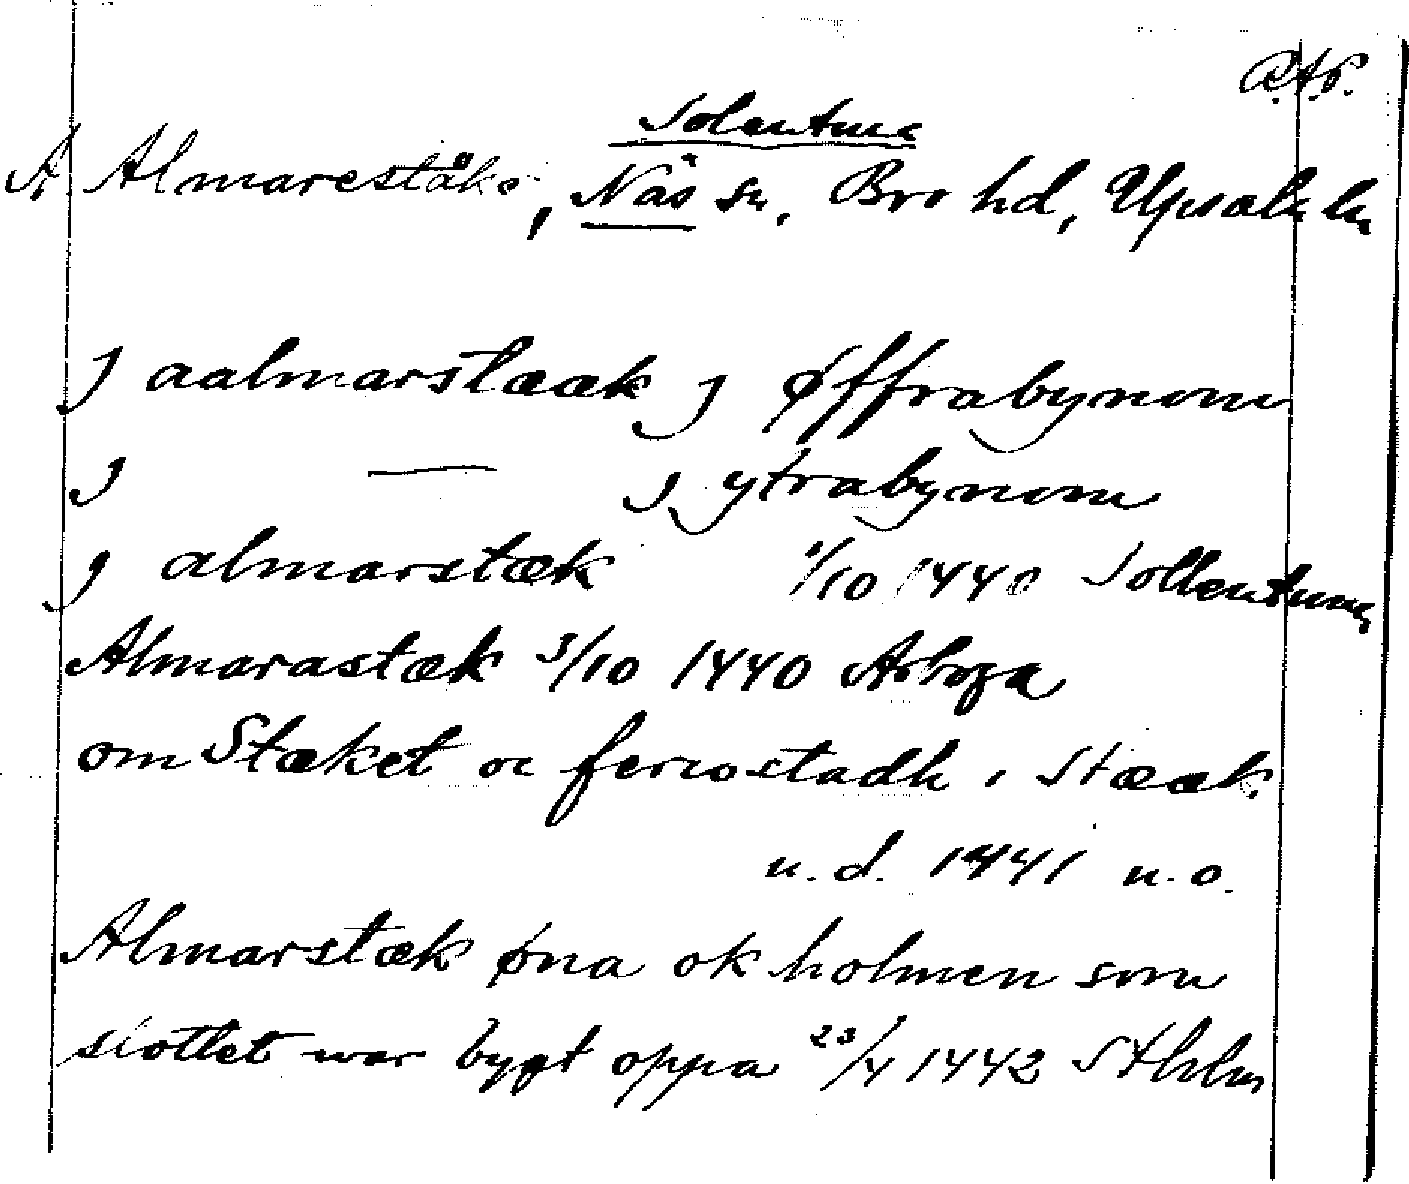 R.A.P.
Solentuna
A Almarestäke, Näs sn, Bro hd, Upsala län
J aalmarstææk J øffrabynom
J — J ytrabynom
J almarstæk 1/10 1440 Sollentuna
Almarastæk 3/10 1440 Arboga
om Stæket oc feriostadh i Stææk
u.d. 1441 u.o.
Almarstæk øna ok holmen som
slottet war bygt oppa 23/4 1442 Sthlm